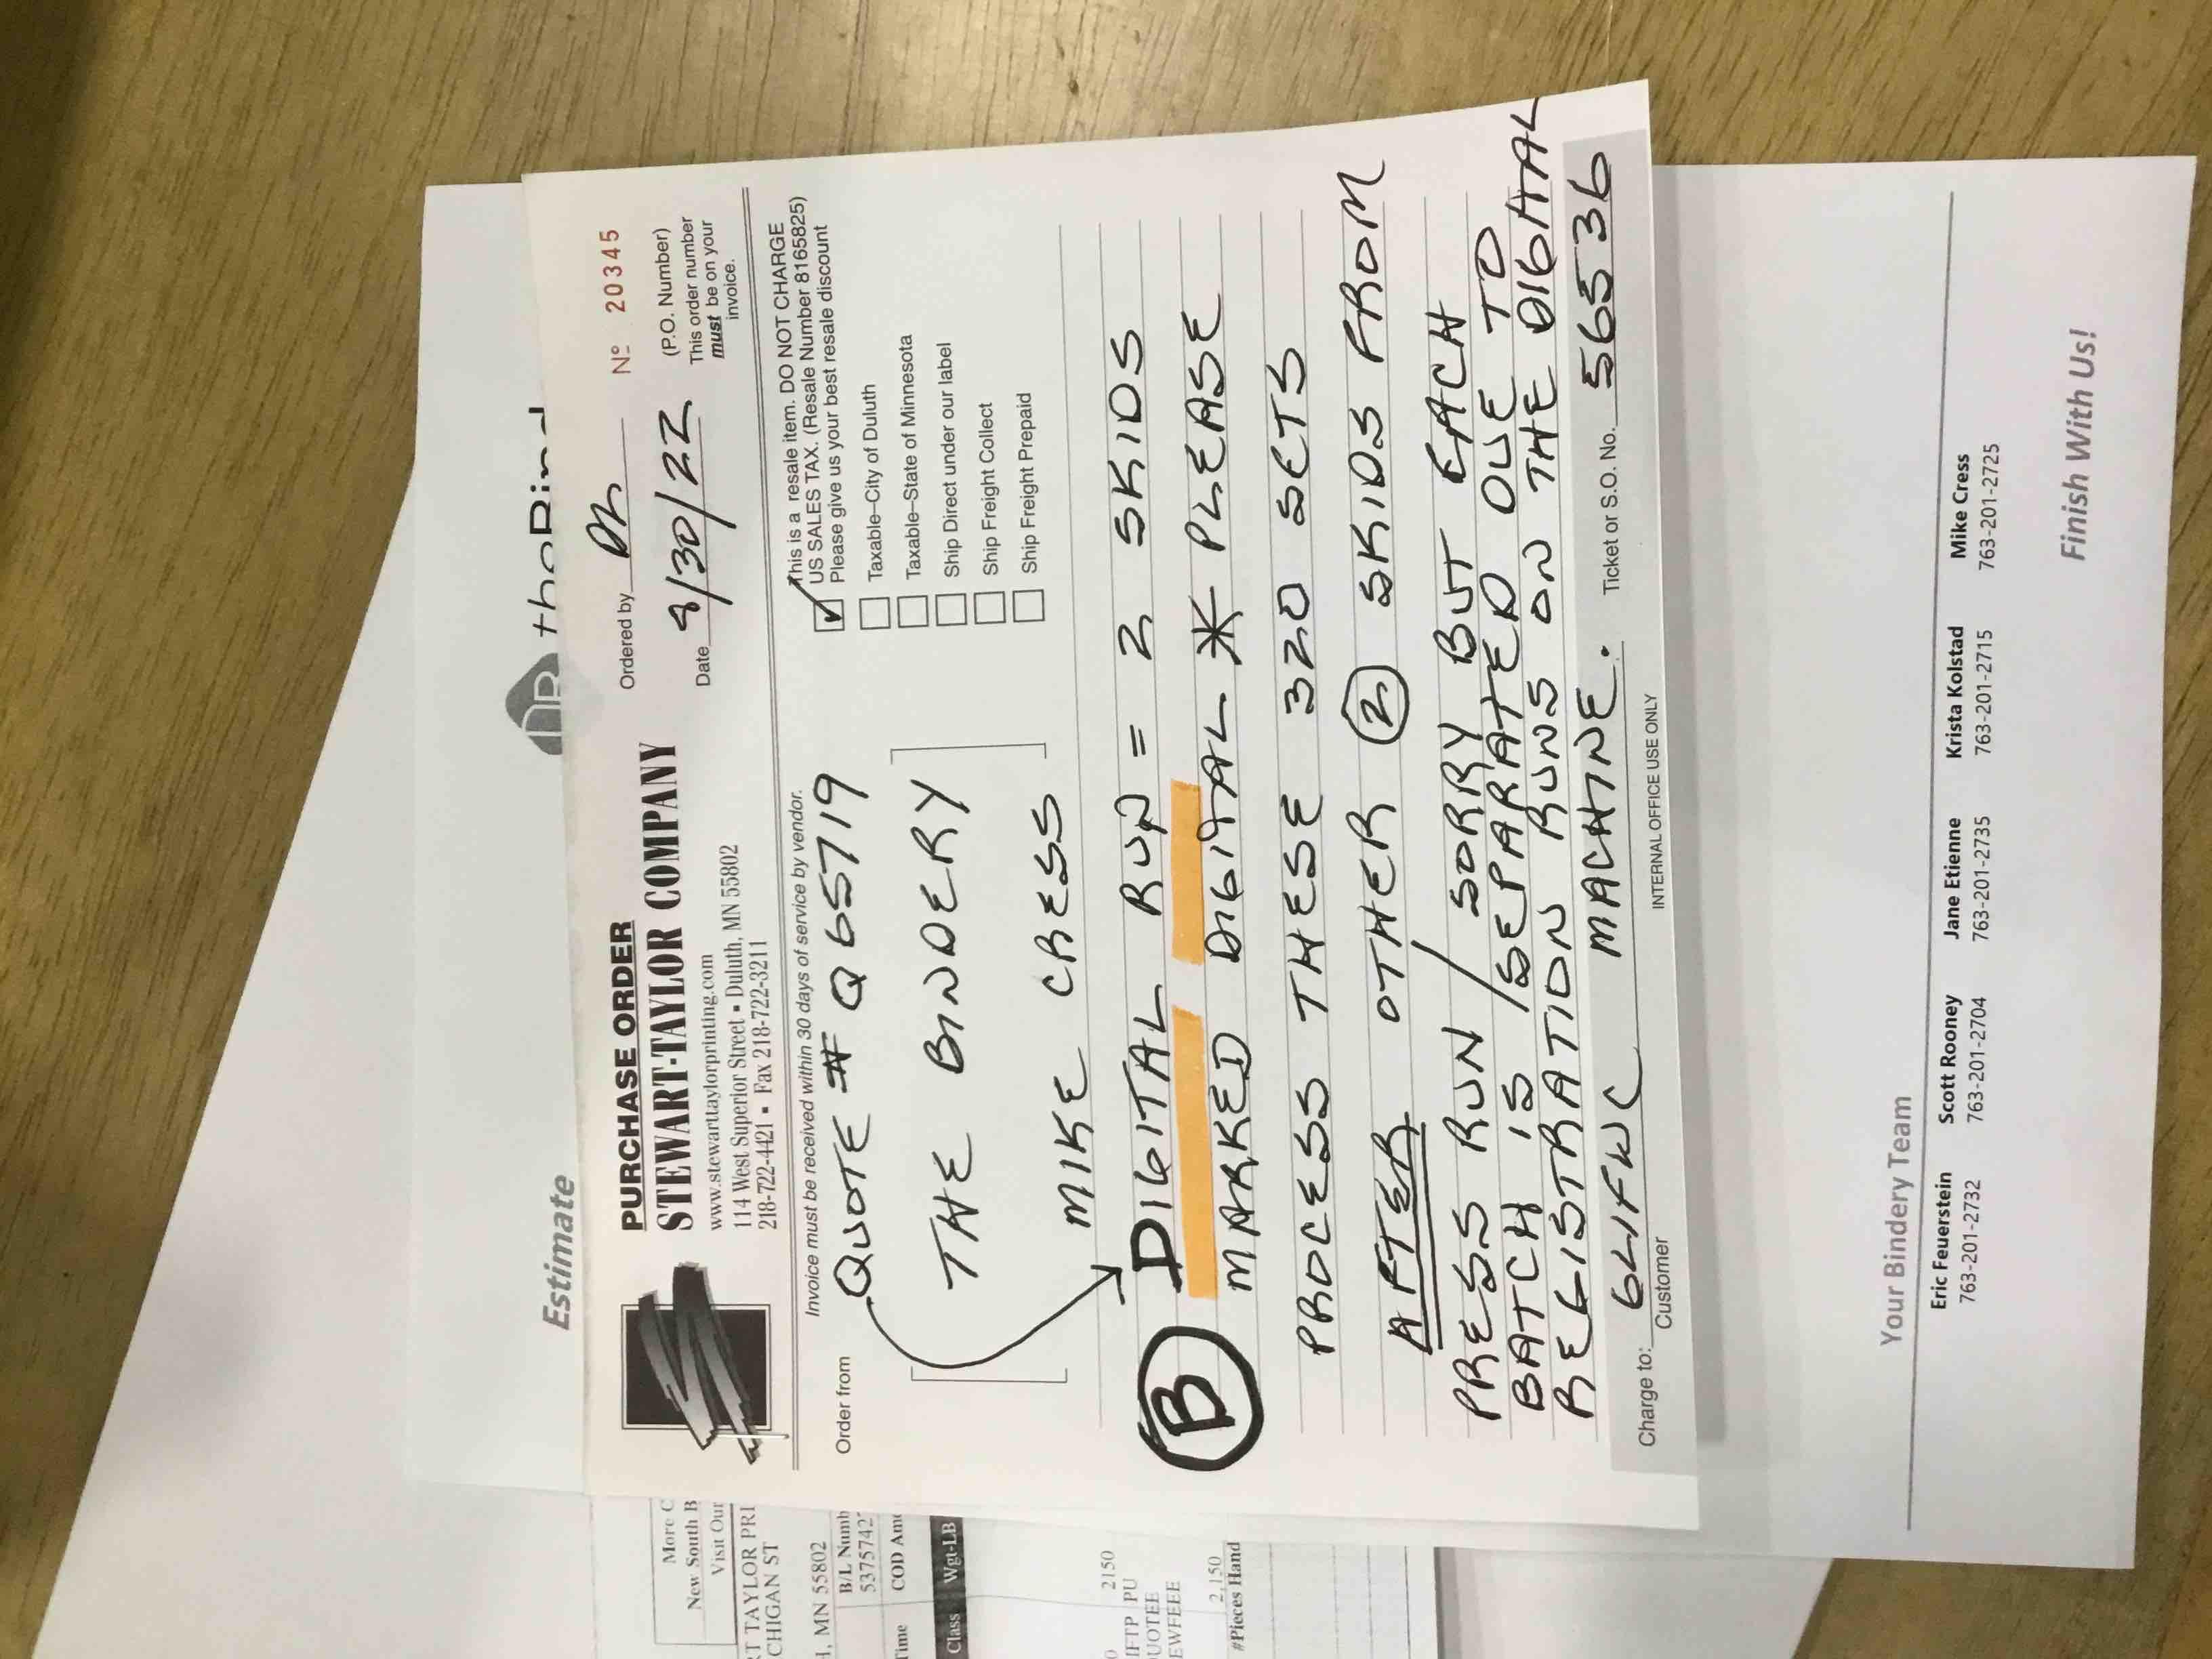 Estimate
PURCHASE ORDER
STEWART-TAYLOR COMPANY
www.stewarttaylorprinting.com
114 West Superior Street • Duluth, MN 55802
218-722-4421 • Fax 218-722-3211
Ordered by
Nº 20345
Date 8/30/22
(P.O. Number)
This order number
must be on your
invoice.
Invoice must be received within 30 days of service by vendor.
Order from
QUOTE # Q65719
THE BINDERY
MIKE CRESS
This is a resale item. DO NOT CHARGE
US SALES TAX. (Resale Number 8165825)
Please give us your best resale discount
Taxable–City of Duluth
Taxable–State of Minnesota
Ship Direct under our label
Ship Freight Collect
Ship Freight Prepaid
B DIGITAL RUN = 2 SKIDS
MARKED DIGITAL * PLEASE
PROCESS THESE 320 SETS
AFTER OTHER 2 SKIDS FROM
PRESS RUN / SORRY BUT EACH
BATCH IS SEPARATED DUE TO
REGISTRATION RUNS ON THE DIGITAL
MACHINE.
Charge to: GLIFWC
Customer
Ticket or S.O. No. 56536
INTERNAL OFFICE USE ONLY
Your Bindery Team
Eric Feuerstein Scott Rooney Jane Etienne Krista Kolstad Mike Cress
763-201-2732 763-201-2704 763-201-2735 763-201-2715 763-201-2725
Finish With Us!
More C
New South B
Visit Our
RT TAYLOR PRI
CHIGAN ST
H, MN 55802
B/L Numb
5375742
Time COD Amo
Class Wgt-LB
2150
IFTP PU
UOTEE
EWFEEE
2,150
#Pieces Hand